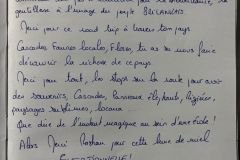 gentillesse à l'image du peuple SRI LANKAIS
Merci pour ce road trip à travers ton pays
Cascades, Faune locales, Flores, tu as su nous faire
découvrir la richesse de ce pays.
Merci pour tout, les stops sur la route pour avoir
des souvenirs, Cascades, Panneaux Eléphants, Rizières,
paysages sublimes,
Que dire de l'instant magique au sein d'une école !
Alors Merci Roshan pour cette lune de miel
EXCEPTIONNELLE !